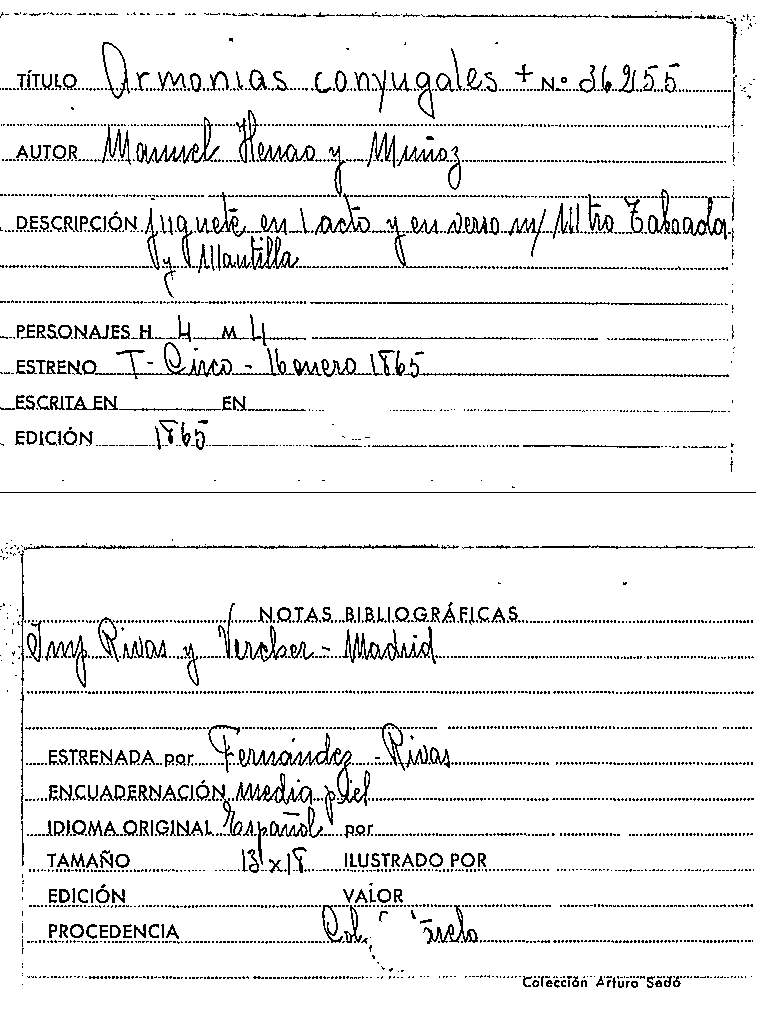 TÍTULO Armonias conyugales + N.º 36255
AUTOR Manuel Henao y Muñoz
DESCRIPCIÓN juguete en 1 acto y en verso m/ Mtro Taboada
y Mantilla
PERSONAJES H 4 M 4
ESTRENO T- Circo - 16 enero 1865
ESCRITA EN EN
EDICIÓN 1865
NOTAS BIBLIOGRÁFICAS
Imp Rivas y Vercher - Madrid
ESTRENADA por Fernández - Rivas
ENCUADERNACIÓN media piel
IDIOMA ORIGINAL Español por
TAMAÑO 13 x 18 ILUSTRADO POR
EDICIÓN VALOR
PROCEDENCIA Col.
Colección Arturo Sedó